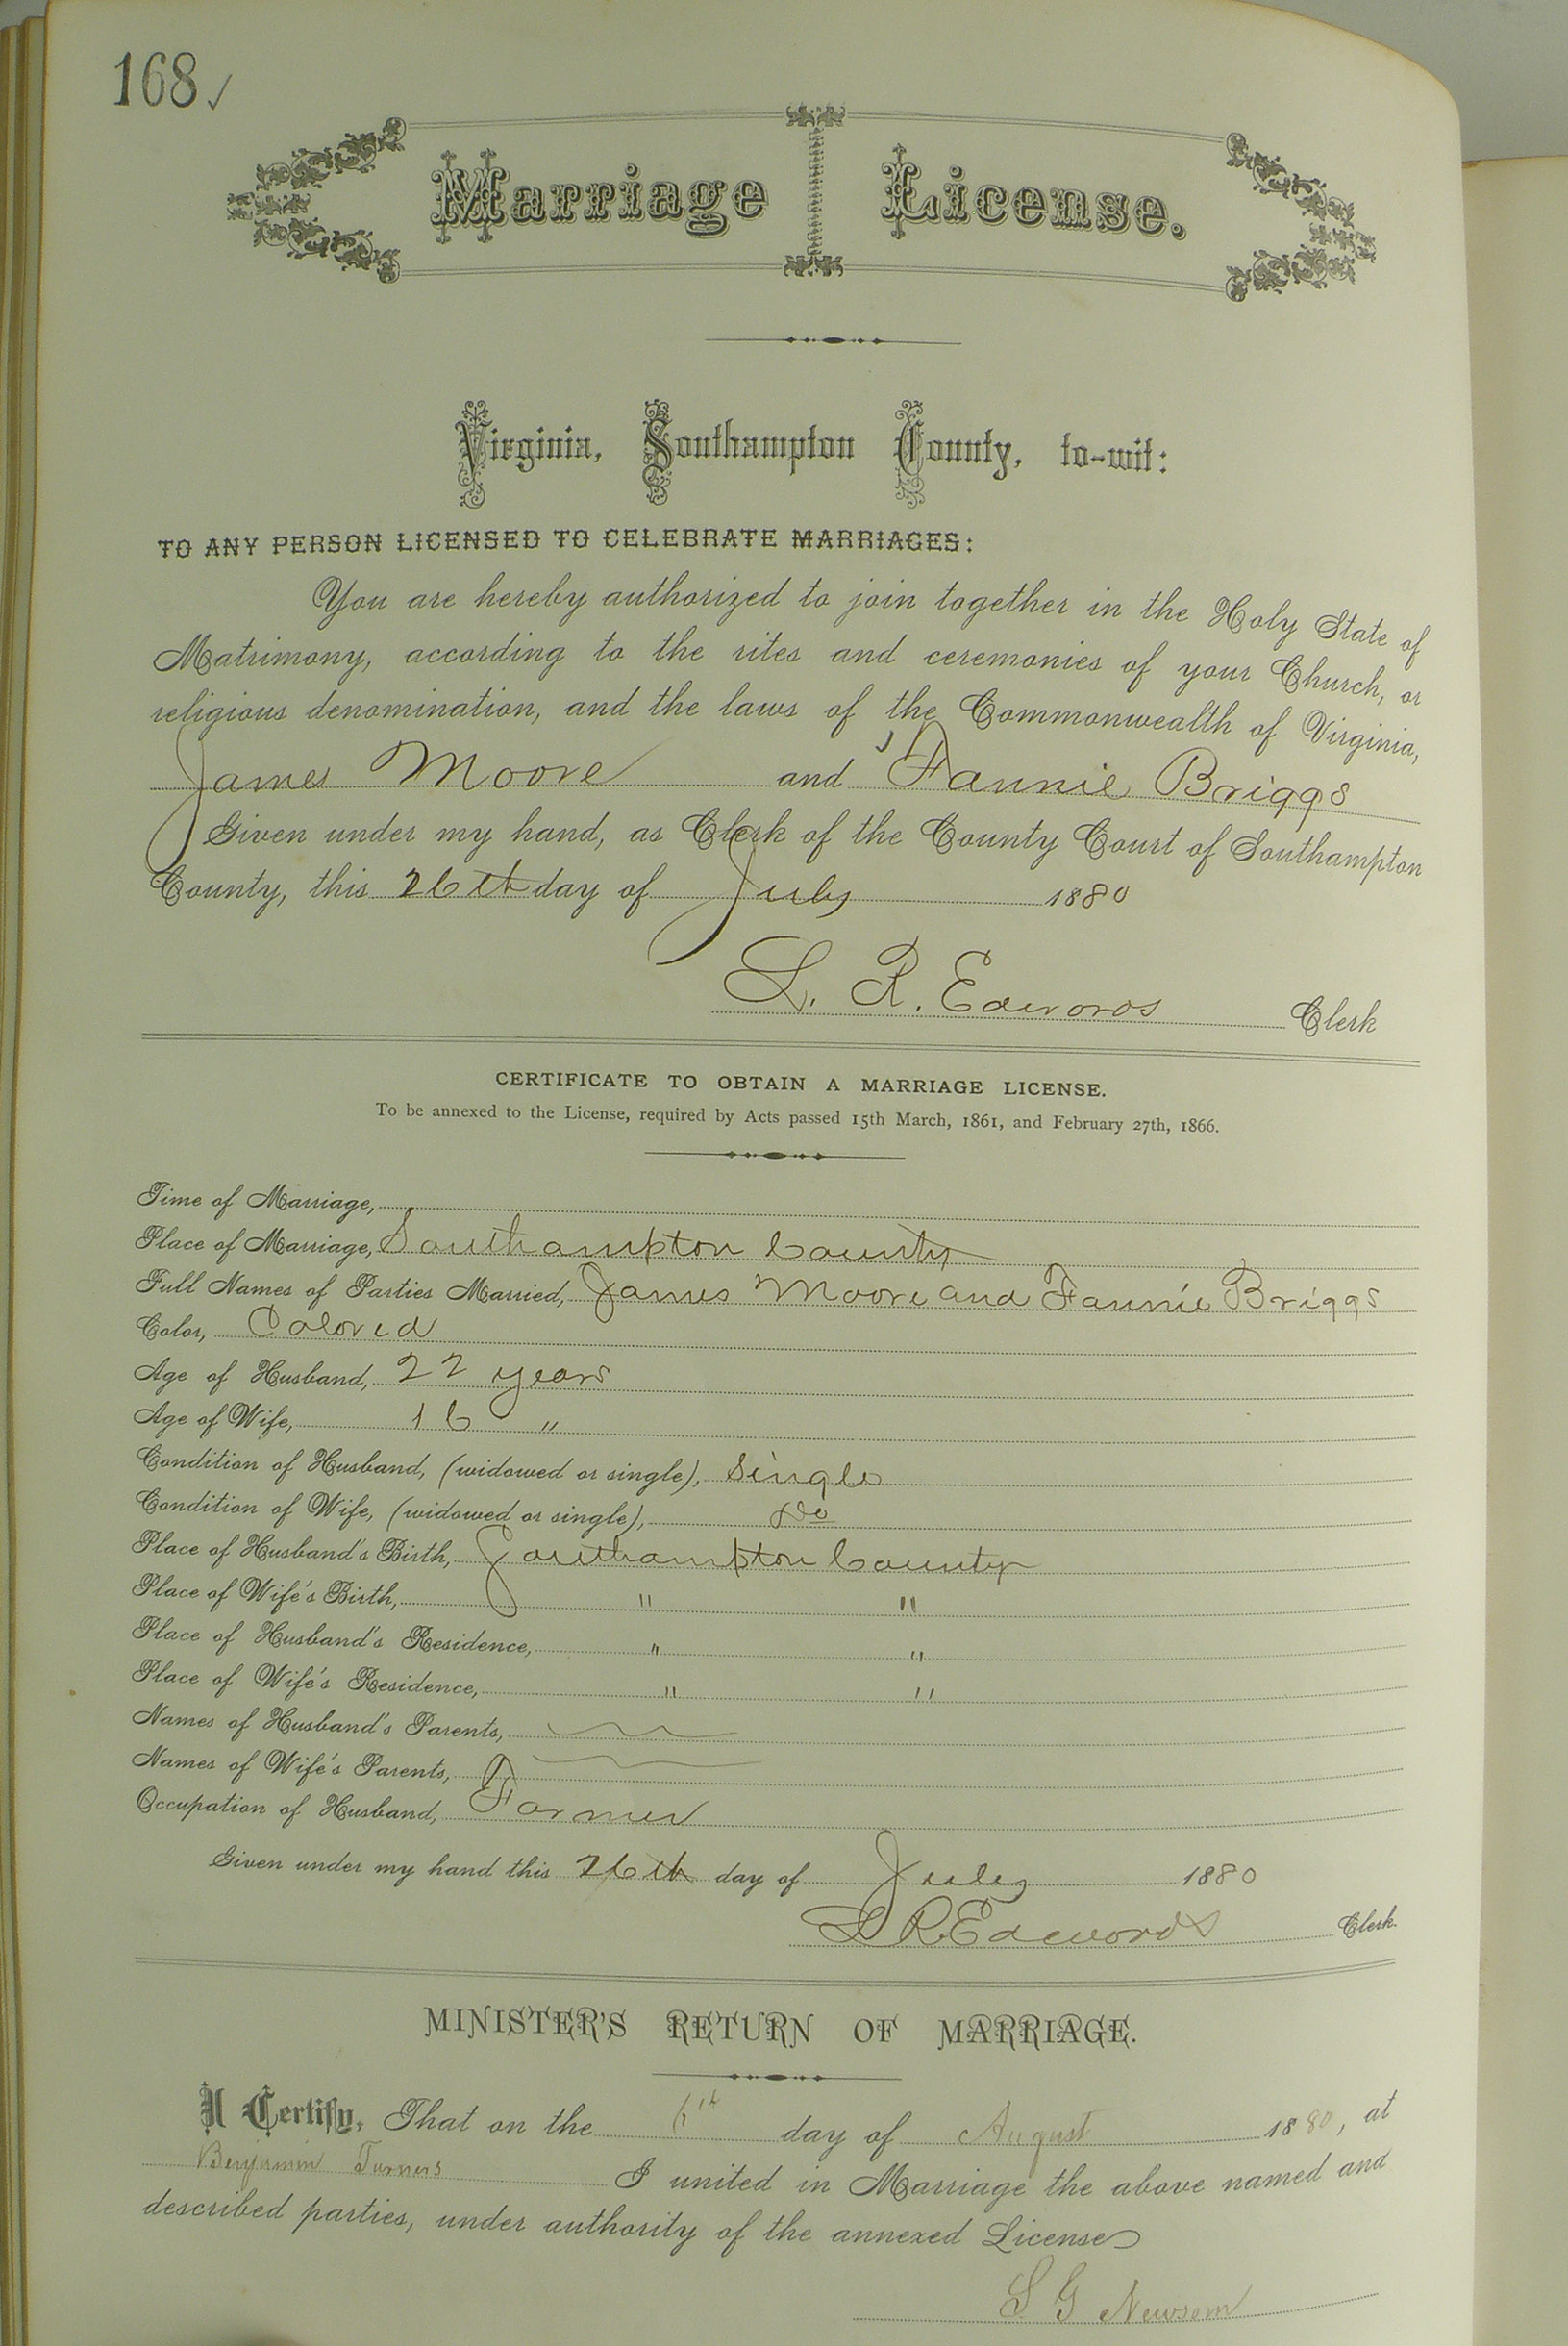 168✓
Marriage License.
Virginia, Southampton County, to-wit:
TO ANY PERSON LICENSED TO CELEBRATE MARRIAGES:
You are hereby authorized to join together in the Holy State of
Matrimony, according to the rites and ceremonies of your Church, or
religious denomination, and the laws of the Commonwealth of Virginia,
James Moore and Fannie Briggs
Given under my hand, as Clerk of the County Court of Southampton
County, this 26th day of July 1880
L. R. Edwards Clerk
CERTIFICATE TO OBTAIN A MARRIAGE LICENSE.
To be annexed to the License, required by Acts passed 15th March, 1861, and February 27th, 1866.
Time of Marriage,
Place of Marriage, Southampton County
Full Names of Parties Married, James Moore and Fannie Briggs
Color, Colored
Age of Husband, 22 years
Age of Wife, 16 "
Condition of Husband, (widowed or single), Single
Condition of Wife, (widowed or single), Do
Place of Husband's Birth, Southampton County
Place of Wife's Birth, " "
Place of Husband's Residence, " "
Place of Wife's Residence, " "
Names of Husband's Parents,
Names of Wife's Parents,
Occupation of Husband, Farmer
Given under my hand this 26th day of July 1880
L R Edwards Clerk.
MINISTER'S RETURN OF MARRIAGE.
I Certify, That on the 6th day of August 1880, at
Benjamin Turners I united in Marriage the above named and
described parties, under authority of the annexed License
S G Newsom